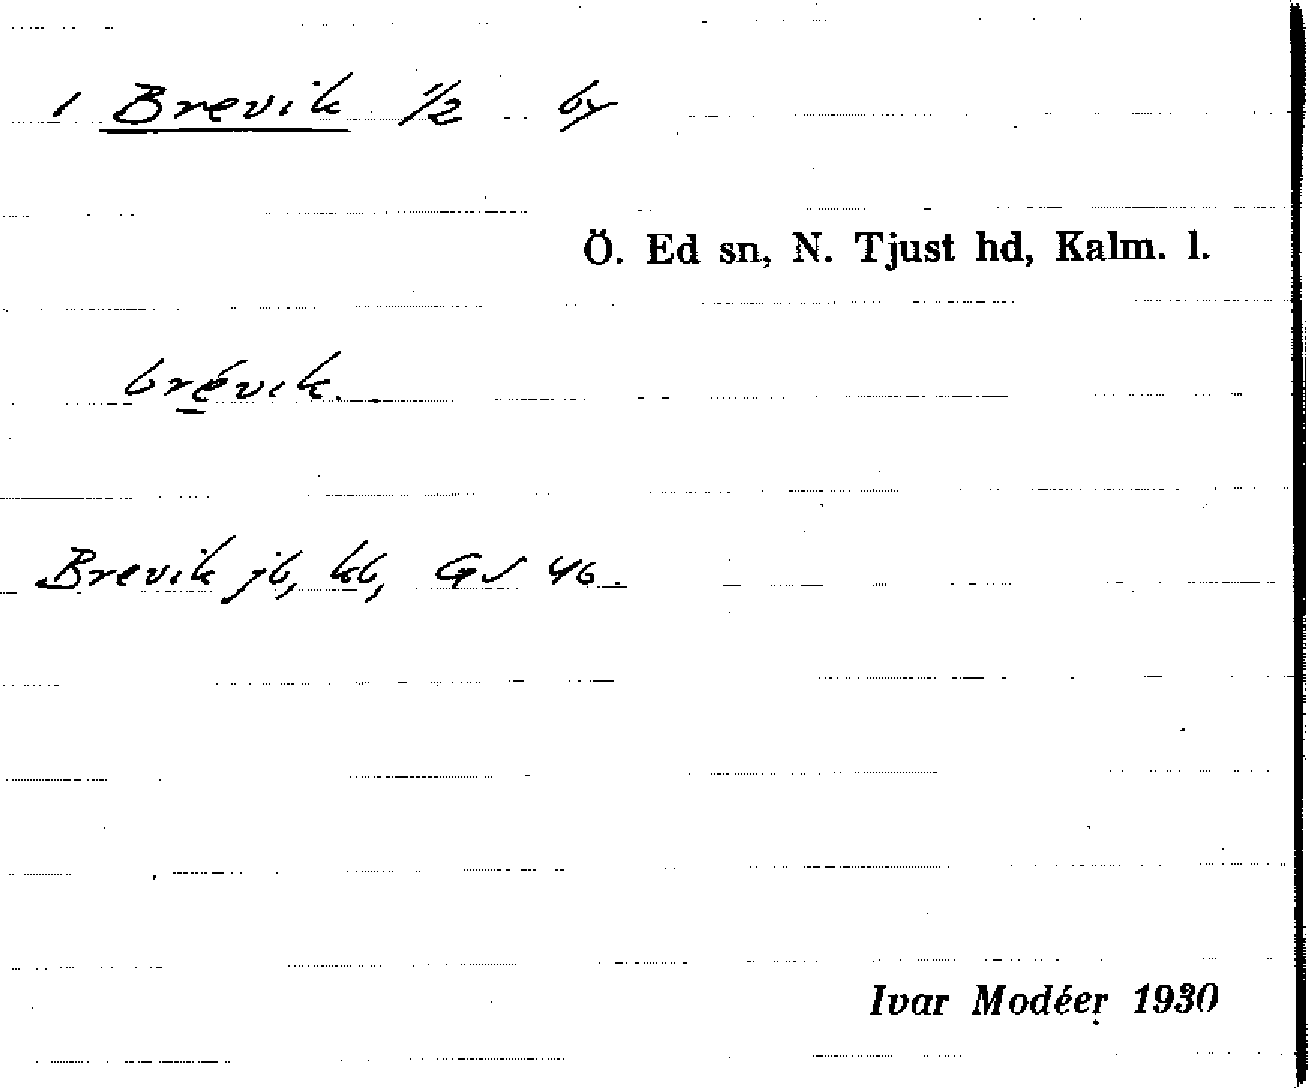 1 Brevik 1/2 by
Ö. Ed sn, N. Tjust hd, Kalm. l.
brévik.
Brevik jb, kb, GS 46.
Ivar Modéer 1930